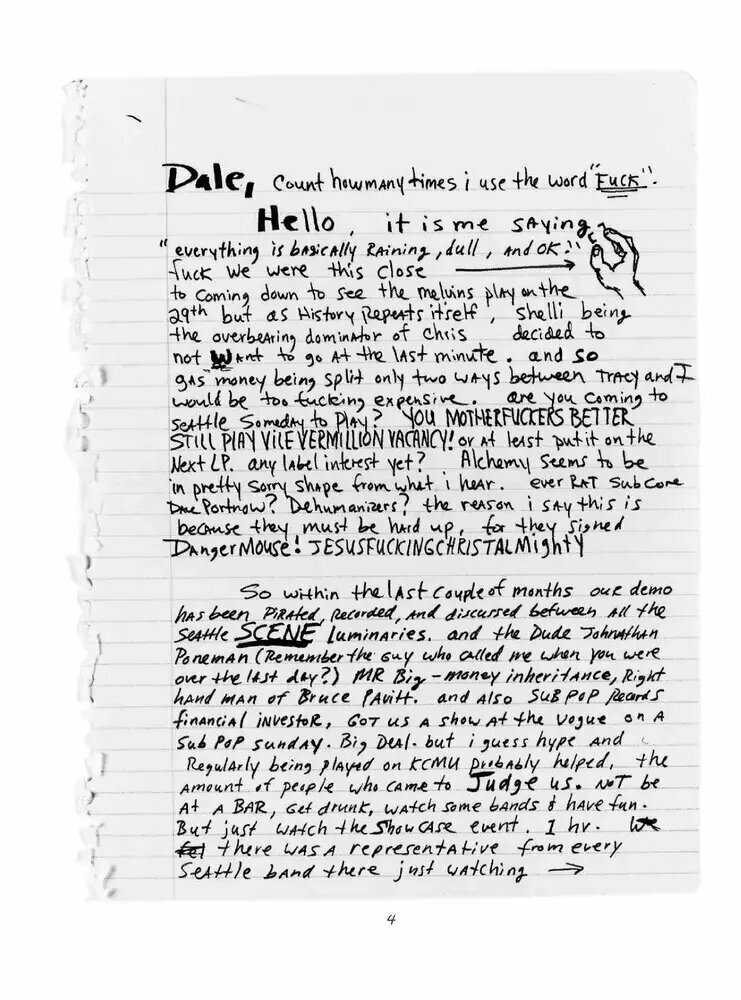 Dale, Count how many times i use the word "FUCK".
Hello, it is me SAying,
"everything is bASicAlly RAining, dull, AND OK!"
fuck We were this close
to coming down to see the melvins play on the
29th but as History Repeats itself, Shelli being
the overbeAring dominAtor of Chris decided to
not WANt to go At the lAst minute. and so
gAs money being split only two wAys between TRACY and I
would be too fucking expensive. are you coming to
seAttle Someday to PlAy? YOU MOTHERFUCKERS BETTER
STILL PLAY VILE VERMILLION VACANCY! or At least put it on the
Next LP. any lAbel interest yet? Alchemy seems to be
in pretty sorry shape from what i heAr. ever RAT SubCore
Dave Portnow? Dehumanizers? the reason i say this is
becAuse they must be hard up, for they signed
DAngerMouse! JESUSFUCKINGCHRISTALMighty
So within the lAst Couple of months our demo
hAs been PiRAted, Recorded, And discussed between All the
SeAttle SCENE luminaries. and the Dude Johnathan
Poneman (Remember the Guy who cAlled me when you were
over the lAst dAy?) MR Big-money inheritAnce, Right
hAnd mAn of Bruce PAvitt. and Also SUB POP Records
finANciAl iNvestoR, GOT us A show At the Vogue on A
Sub POP sunday. Big DeAl. but i guess hype AND
RegulArly being plAyed on KCMU probAbly helped, the
Amount of people who cAme to Judge us. NOT be
At A BAR, Get drunk, wAtch some bands & hAve fun.
But just wAtch the ShowCASe event. 1 hr. We
fel there wAs A representative from every
SeAttle bAnd there just wAtching →
4